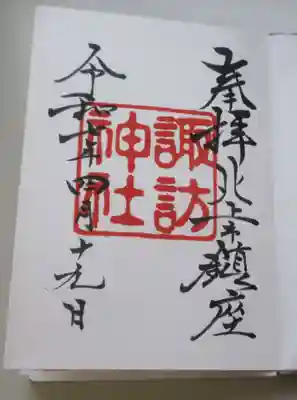 奉拝 北上市鎮座
諏訪
神社
令和七年四月十九日